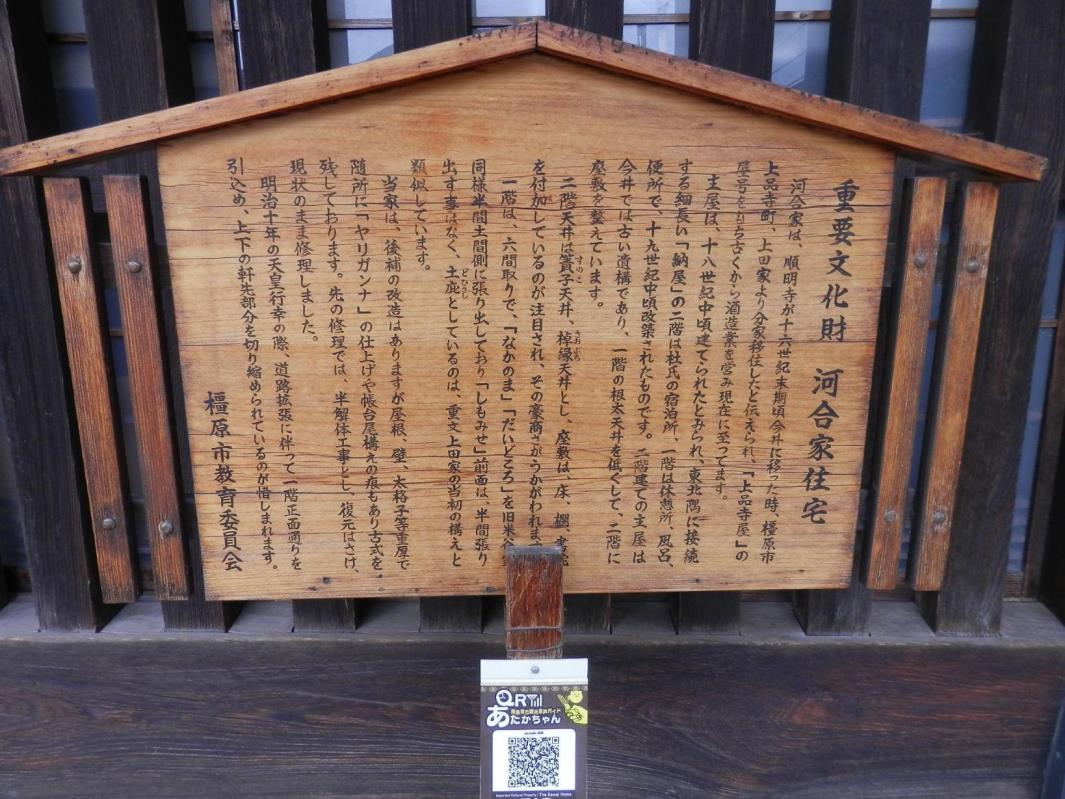 重要文化財 河合家住宅
河合家は、順明寺が十六世紀末期頃今井に移った時、橿原市
上品寺町、上田家より分家移住したと伝えられ、「上品寺屋」の
屋号をもち古くから酒造業を営み現在に至ってます。
主屋は、十八世紀中頃建てられたとみられ、東北隅に接続
する細長い「納屋」の二階は杜氏の宿泊所、一階は休憩所、風呂、
便所で、十九世紀中頃改築されたものです。二階建ての主屋は
今井では古い遺構であり、一階の根太天井を低くして、二階に
座敷を整えています。
二階天井は簀子天井、棹縁天井とし、座敷は、床、棚、書院
すのこ
さおぶち
を付加しているのが注目され、その豪商さがうかがわれます
一階は、六間取りで、「なかのま」「だいどころ」を旧米谷
同様半間土間側に張り出しており「しもみせ」前面は、半間張り
出す事はなく、土庇としているのは、重文上田家の当初の構えと
どひさし
類似しています。
当家は、後補の改造はありますが屋根、壁、太格子等重厚で
随所に「ヤリガンナ」の仕上げや帳台尾構えの痕もあり古式を
残しております。先の修理では、半解体工事とし、復元はさけ、
現状のまま修理しました。
明治十年の天皇行幸の際、道路拡張に伴って一階正面通りを
引込め、上下の軒先部分を切り縮められているのが惜しまれます。
橿原市教育委員会
QR
あたかちゃん
Important Cultural Property / The Kawai Home